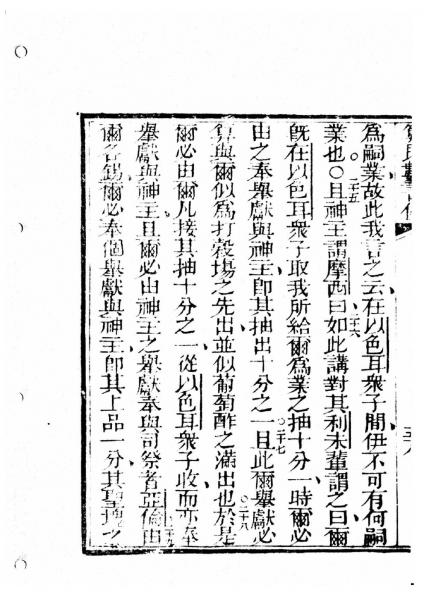 為嗣業故此我言之云在以色耳衆子間伊不可有何嗣
二十五
業也○且神主謂摩西曰如此講對其利未輩謂之曰爾
二十六
既在以色耳衆子取我所給爾為業之抽十分一時爾必
由之奉舉獻與神主卽其抽出十分之一且此爾舉獻必
二十七
算與爾似為打穀場之先出並似葡萄酢之滿出也於是
二十八
爾必由爾凡接其抽十分之一從以色耳衆子收而亦奉
舉獻與神主且爾必由神主之舉獻奉與司祭者亞倫由
爾各錫爾必奉個舉獻與神主卽其上品一分其聖塊之